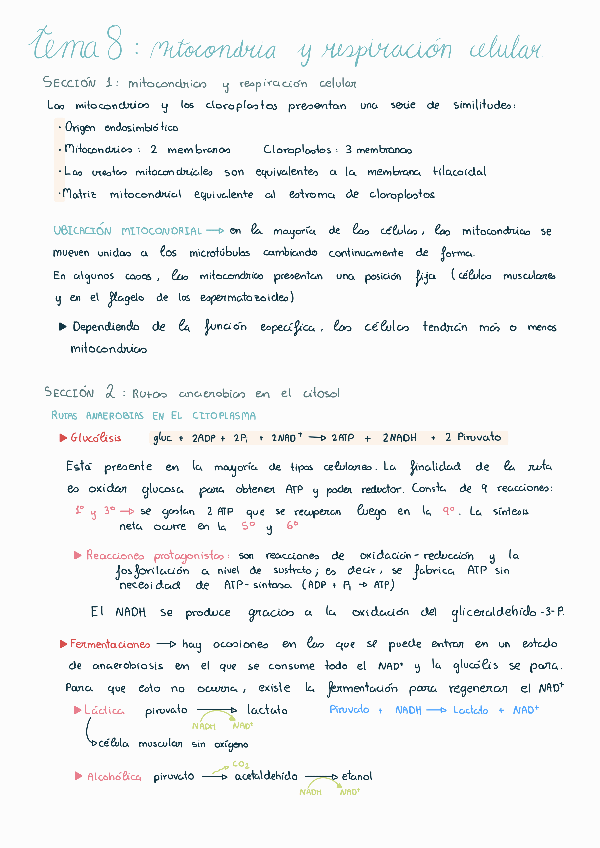 tema 8: mitocondria y respiración celular
SECCIÓN 1: mitocondrias y respiración celular
Las mitocondrias y los cloroplastos presentan una serie de similitudes:
· Origen endosimbiótico
· Mitocondrias: 2 membranas Cloroplastos: 3 membranas
· Las crestas mitocondriales son equivalentes a la membrana tilacoidal
· Matriz mitocondrial equivalente al estroma de cloroplastos
UBICACIÓN MITOCONDRIAL → en la mayoría de las células, las mitocondrias se
mueven unidas a los microtúbulos cambiando continuamente de forma.
En algunos casos, las mitocondrias presentan una posición fija (células musculares
y en el flagelo de los espermatozoides)
▶ Dependiendo de la función específica, las células tendrán más o menos
mitocondrias
SECCIÓN 2: Rutas anaerobias en el citosol
RUTAS ANAEROBIAS EN EL CITOPLASMA
▶ Glucólisis gluc + 2ADP + 2Pi + 2NAD⁺ → 2ATP + 2NADH + 2 Piruvato
Está presente en la mayoría de tipos celulares. La finalidad de la ruta
es oxidar glucosa para obtener ATP y poder reductor. Consta de 9 reacciones:
1º y 3º → se gastan 2 ATP que se recuperan luego en la 9º. La síntesis
neta ocurre en la 5º y 6º
▶ Reacciones protagonistas: son reacciones de oxidación-reducción y la
fosforilación a nivel de sustrato; es decir, se fabrica ATP sin
necesidad de ATP-sintasa (ADP + Pi → ATP)
El NADH se produce gracias a la oxidación del gliceraldehído-3-P.
▶ Fermentaciones → hay ocasiones en las que se puede entrar en un estado
de anaerobiosis en el que se consume todo el NAD⁺ y la glucólis se para.
Para que esto no ocurra, existe la fermentación para regenerar el NAD⁺
▶ Láctica piruvato → lactato Piruvato + NADH → Lactato + NAD⁺
NADH NAD⁺
célula muscular sin oxígeno
CO2
▶ Alcohólica piruvato → acetaldehído → etanol
NADH NAD⁺